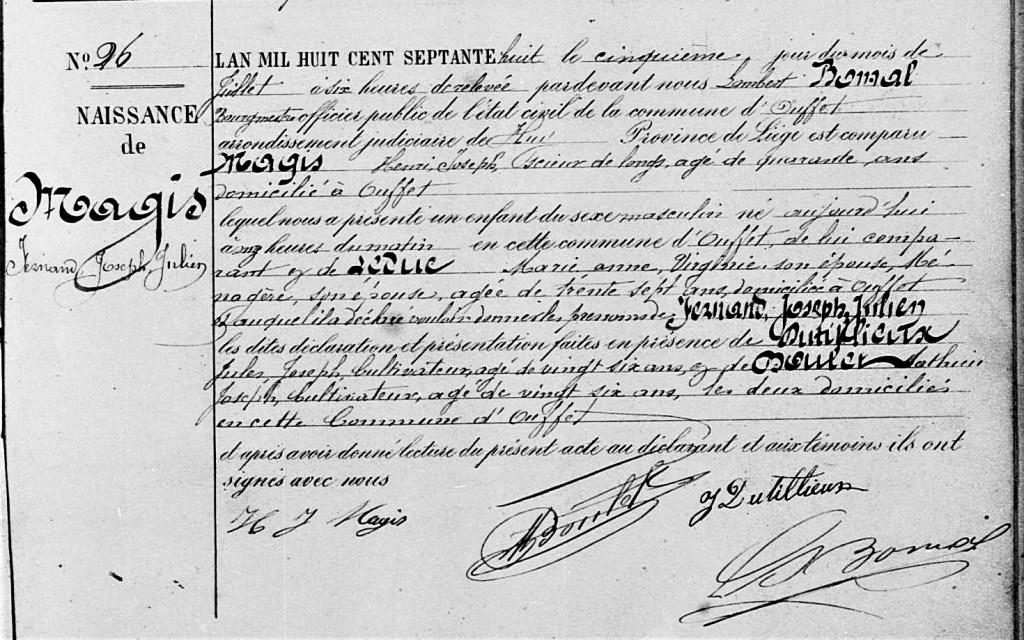 No 26
NAISSANCE
de
Magis
Fernand, Joseph, Julien
LAN MIL HUIT CENT SEPTANTE huit le cinquième jour du mois de
Juillet à six heures de relevée pardevant nous Lambert Bomal
Bourgmestre officier public de l'état civil de la commune d'Ouffet
arrondissement judiciaire de Hui Province de Liège est comparu
Magis Henri Joseph, Scieur de longs, agé de quarante ans
domicilié à Ouffet
lequel nous a présenté un enfant du sexe masculin né aujourd'hui
à onze heures du matin en cette commune d'Ouffet, de lui compa-
rant & de Leduc Marie anne, Virginie son épouse, Mé-
nagère, son épouse, agée de trente sept ans, domiciliée à Ouffet
& auquel il a déclaré vouloir donner les prenoms de Fernand, Joseph, Julien
les dites déclaration et présentation faites en présence de Dutillieux
Jules, Joseph, Cultivateur, agé de vingt six ans, & de Doulet Mathieu
Joseph, Cultivateur, agé de vingt six ans, les deux domiciliés
en cette Commune d'Ouffet
et après avoir donné lecture du présent acte au déclarant et aux témoins ils ont
signés avec nous
H J Magis
M Doulet
J Dutillieux
L Bomal